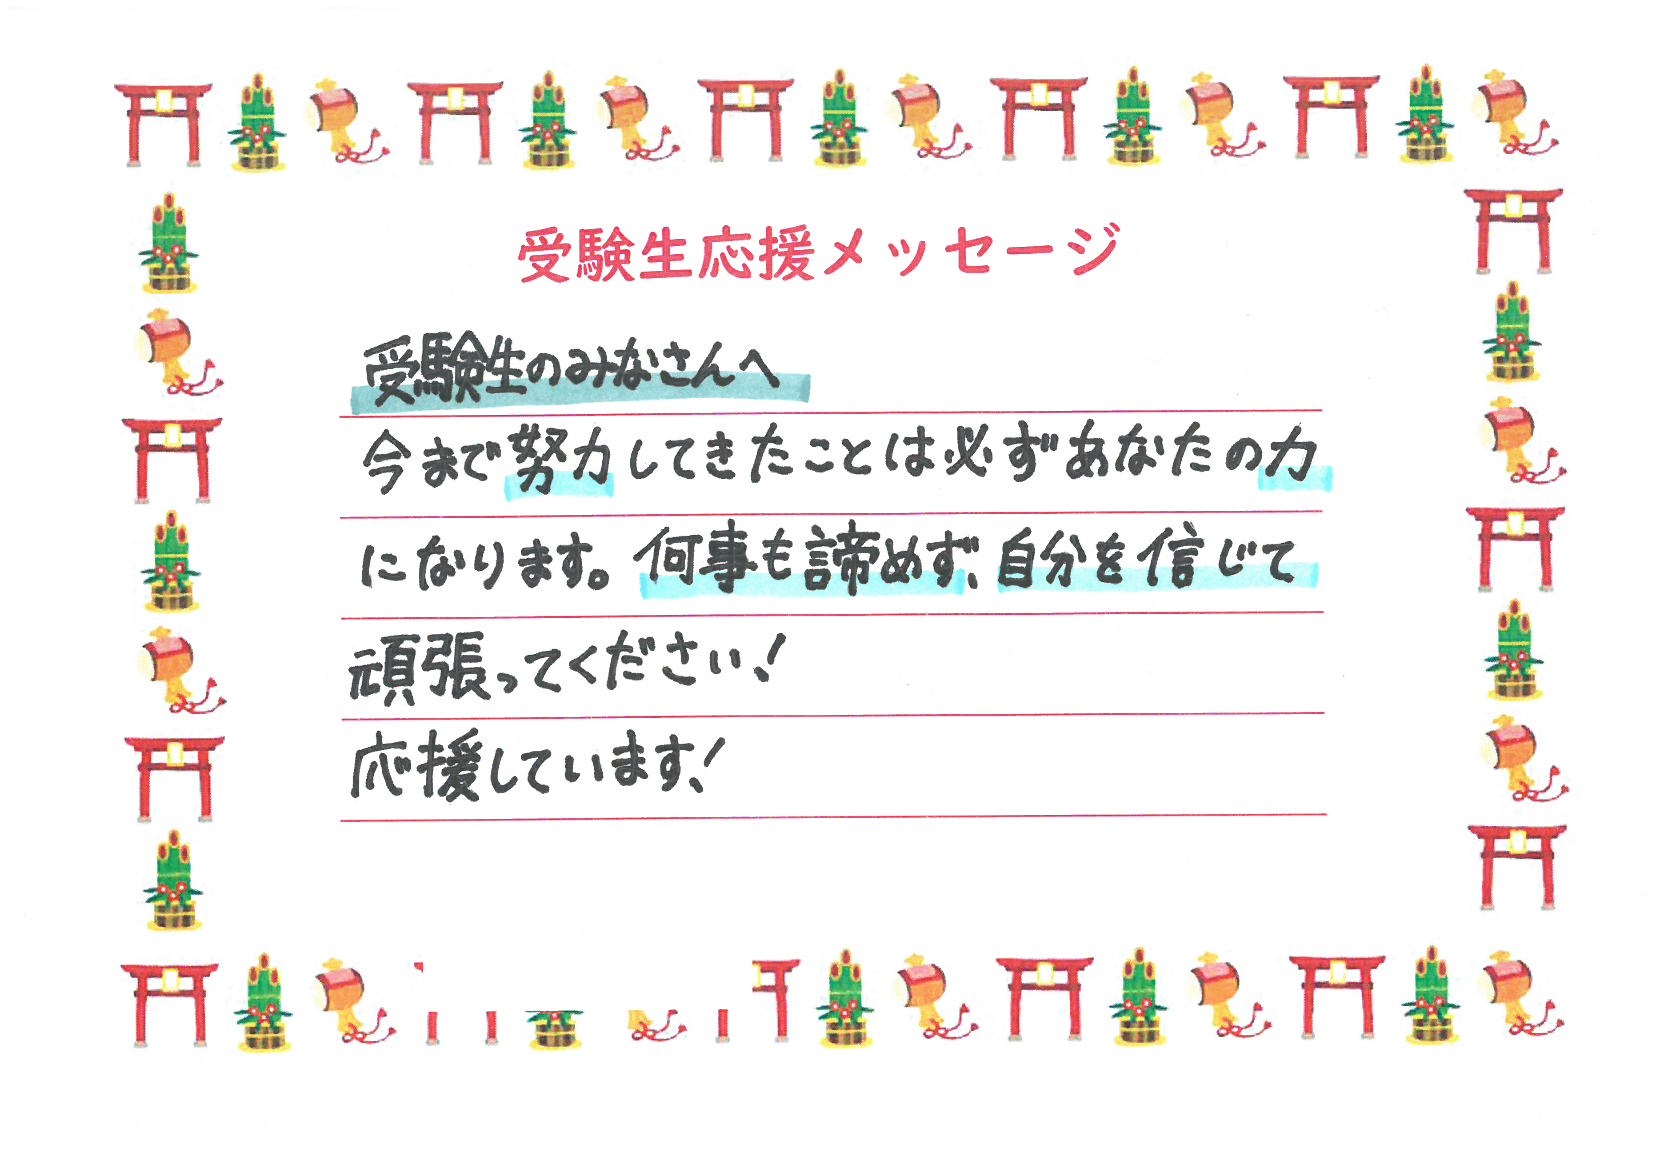 受験生応援メッセージ
受験生のみなさんへ
今まで努力してきたことは必ずあなたの力
になります。何事も諦めず、自分を信じて
頑張ってください!
応援しています!